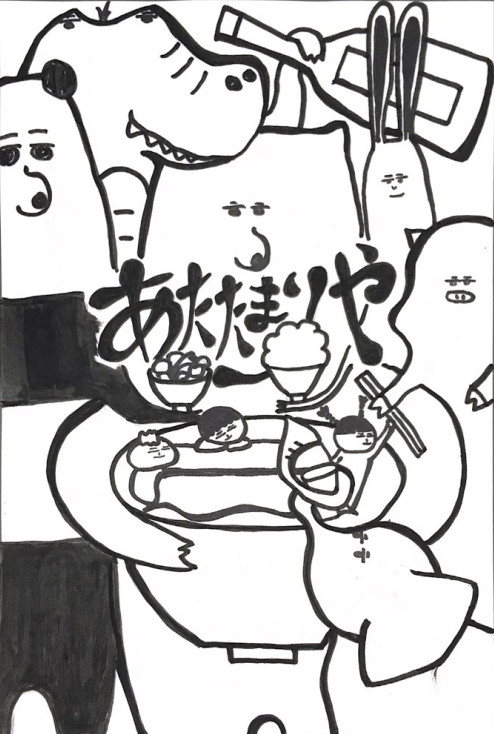 あたたまりや